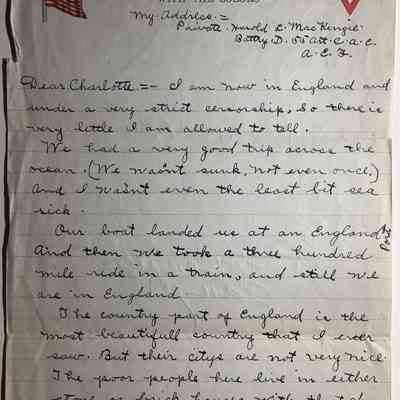 WITH THE COLORS
My Address =
Private Harold E. MacKenzie
Battry D. 55 Art. C. A. C.
A. E. F.
Dear Charlotte =- I am now in England and
under a very strict censorship, so there is
very little I am allowed to tell.
We had a very good trip across the
ocean. (We wasn't sunk, not even once.)
And I wasn't even the least bit sea
sick.
Our boat landed us at an England
And then we took a three hundred
mile ride in a train, and still we
are in England
The country part of England is the
most beautifull country that I ever
saw. But their citys are not very nice.
The poor people here live in either
stone or brick houses with